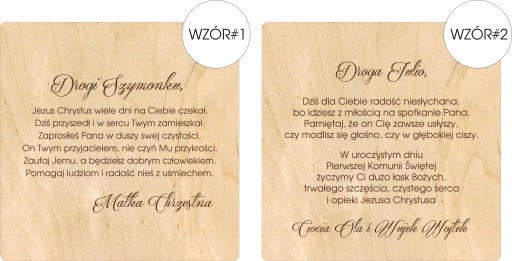 WZÓR#1
Drogi Szymonku,
Jezus Chrystus wiele dni na Ciebie czekał.
Dziś przyszedł i w sercu Twym zamieszkał.
Zaprosiłeś Pana w duszy swej czystości.
On Twym przyjacielem, nie czyń Mu przykrości.
Zaufaj Jemu, a będziesz dobrym człowiekiem.
Pomagaj ludziom i radość nieś z uśmiechem.
Matka Chrzestna
WZÓR#2
Droga Julio,
Dziś dla Ciebie radość niesłychana,
bo idziesz z miłością na spotkanie Pana.
Pamiętaj, że on Cię zawsze usłyszy,
czy modlisz się głośno, czy w głębokiej ciszy.
W uroczystym dniu
Pierwszej Komunii Świętej
życzymy Ci dużo łask Bożych,
trwałego szczęścia, czystego serca
i opieki Jezusa Chrystusa
Ciocia Ola i Wujek Wojtek